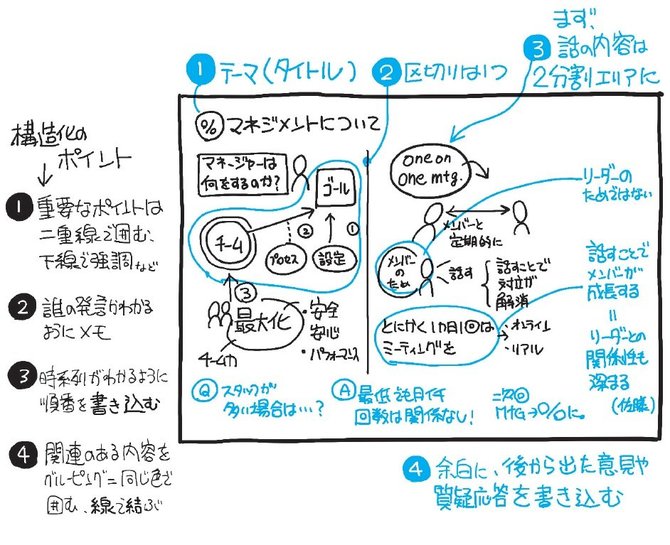 構造化の
ポイント
1 重要なポイントは
二重線で囲む、
下線で強調など
2 誰の発言かわかる
ようにメモ
3 時系列がわかるように
順番を書き込む
4 関連のある内容を
グルーピング=同じ色で
囲む、線で結ぶ
1 テーマ(タイトル)
2 区切りは1つ
まず、
3 話の内容は
2分割エリアに
% マネジメントについて
マネージャーは
何をするのか?
ゴール
チーム
② ①
プロセス
設定
③
最大化
チーム力
・安全
安心
・パフォーマンス
one on
one mtg.
メンバーと
定期的に
メンバー
のため
話す
話すことで
対立が
解消
とにかく1カ月1回は
ミーティングを
・オンライン
・リアル
リーダーの
ためではない
話すことで
メンバーが
成長する
=
リーダーとの
関係性も
深まる
(佐藤)
Q スタッフが
多い場合は…?
A 最低
回数は関係なし!
次回
MTG→%に。
4 余白に、後から出た意見や
質疑応答を書き込む